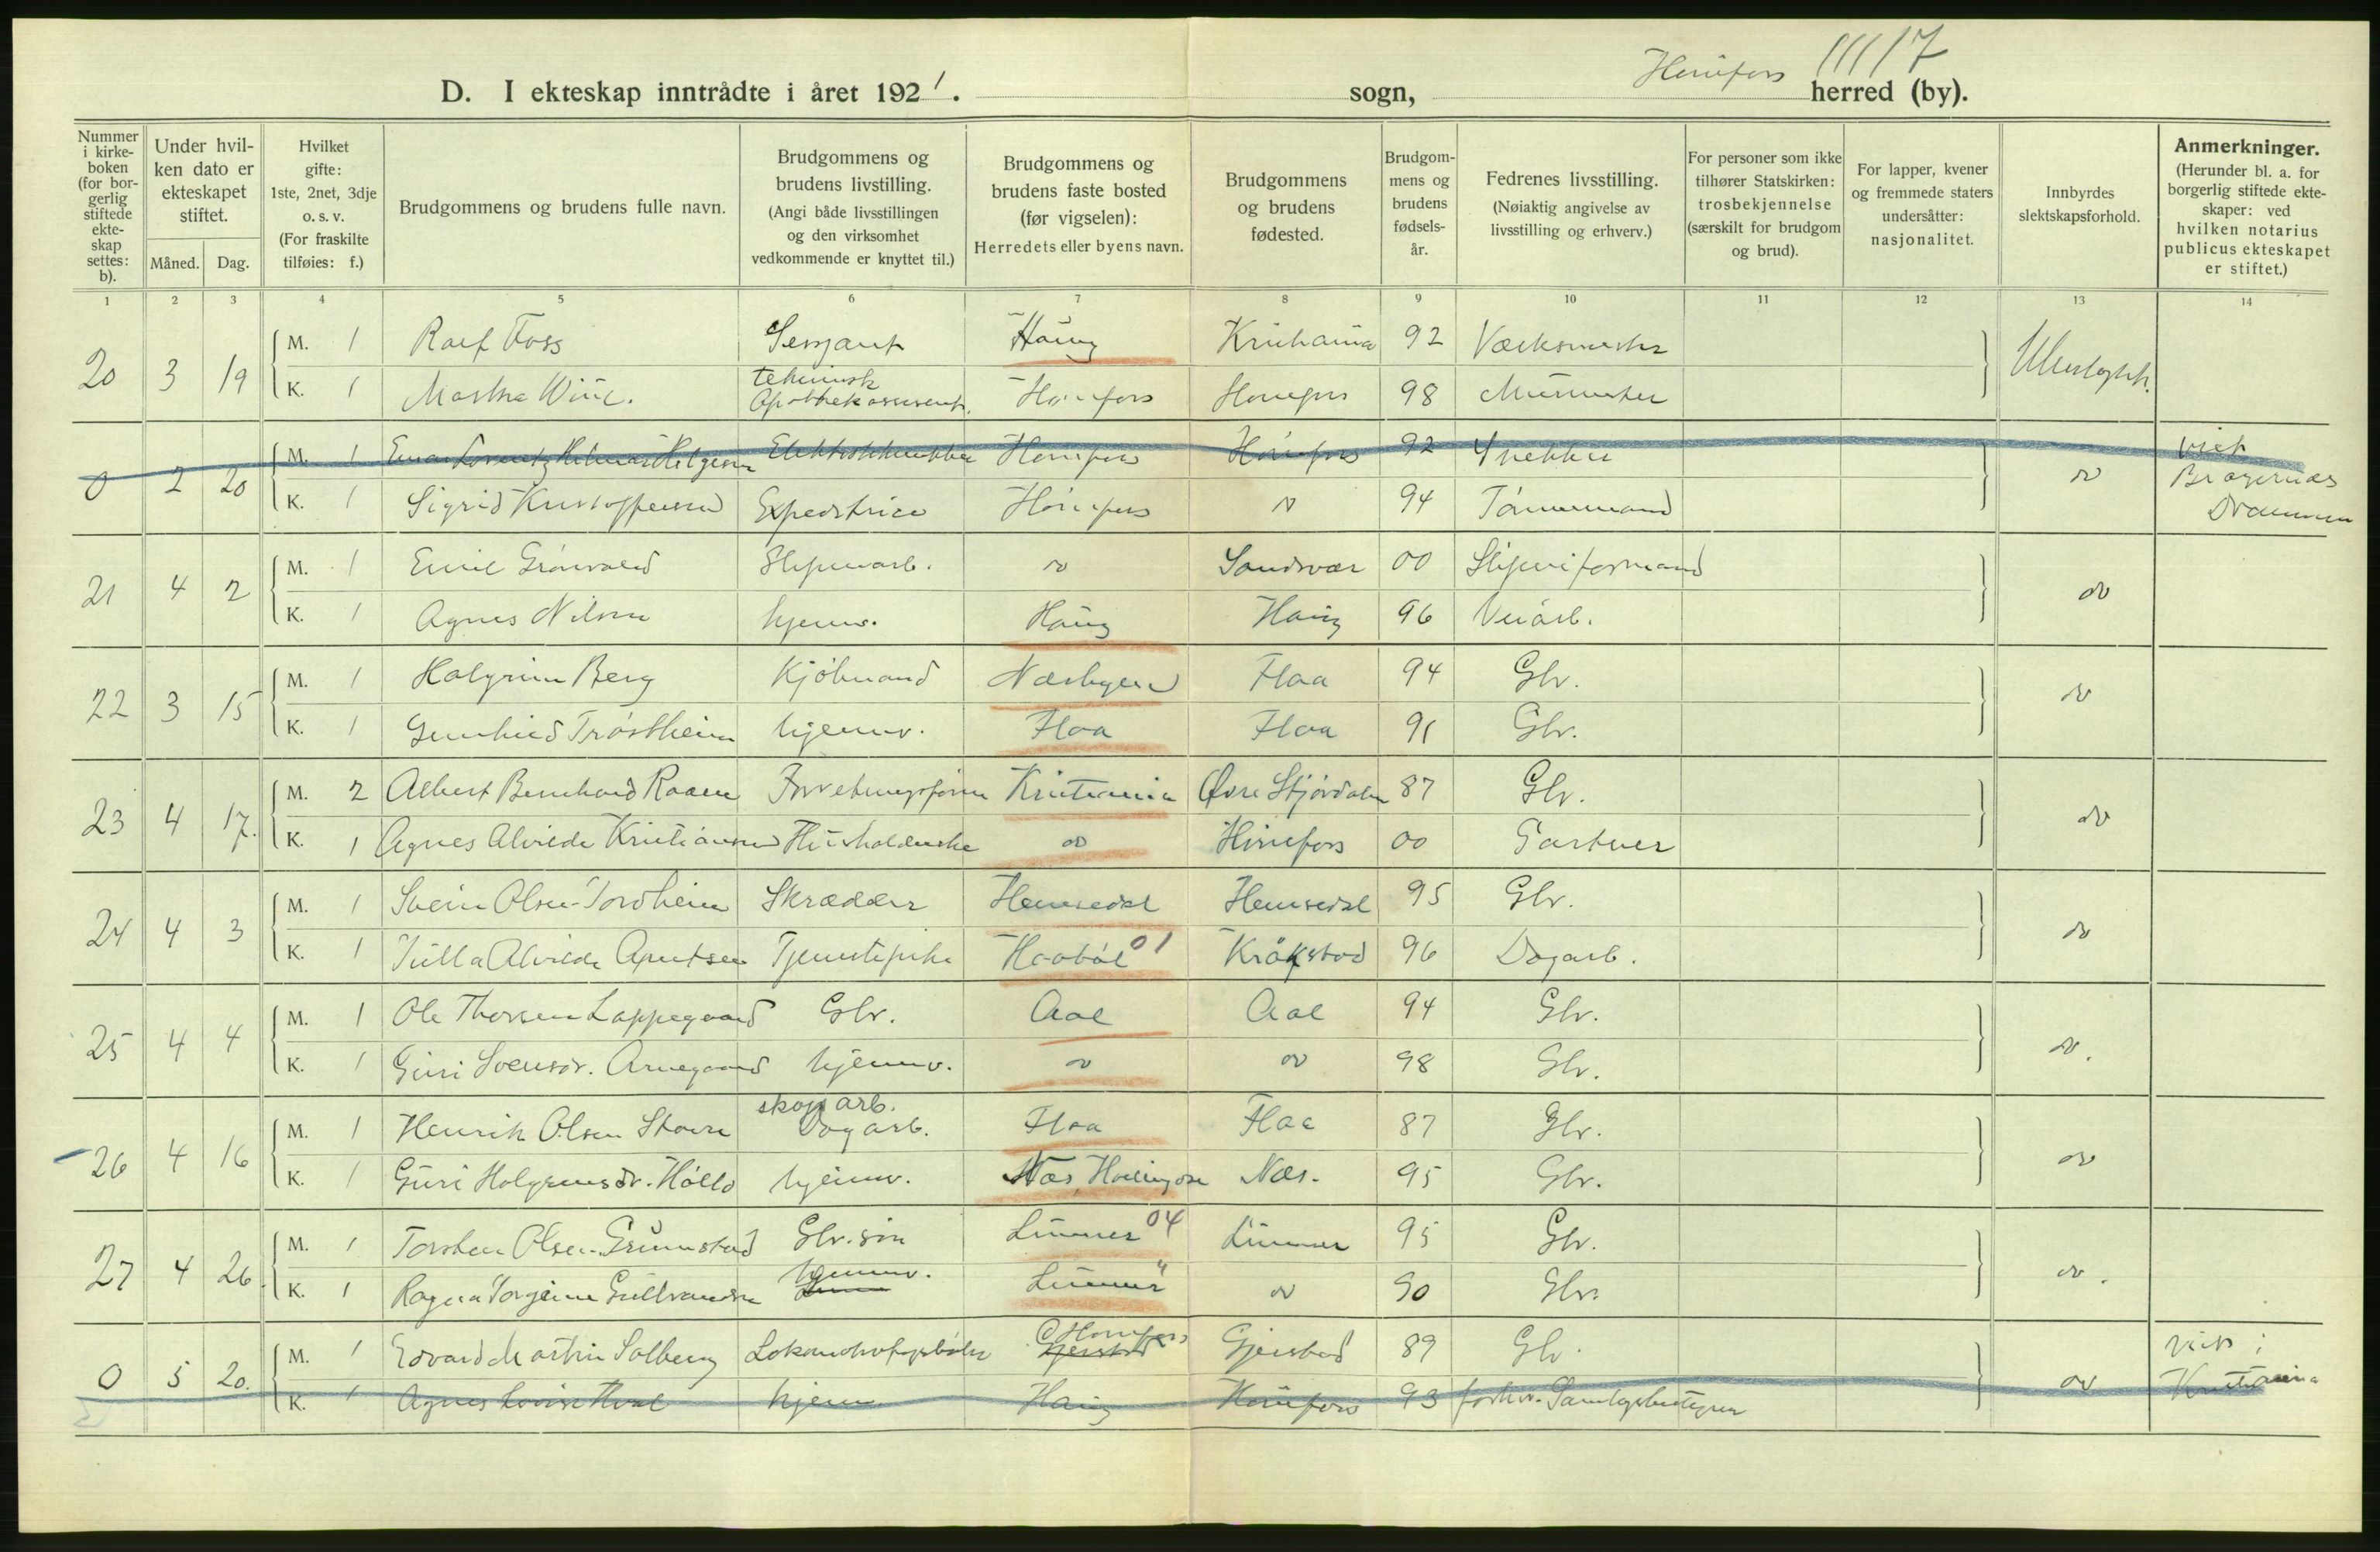 Hønefoss 111/17
D. I ekteskap inntrådte i året 1921. sogn, herred (by).
Nummer i kirke-boken (for bor-gerlig stiftede ekte-skap settes: b).
Under hvil-ken dato er ekteskapet stiftet.
Måned. Dag.
Hvilket gifte: 1ste, 2net, 3dje o. s. v. (For fraskilte tilføies: f.)
Brudgommens og brudens fulle navn.
Brudgommens og brudens livstilling. (Angi både livsstillingen og den virksomhet vedkommende er knyttet til.)
Brudgommens og brudens faste bosted (før vigselen): Herredets eller byens navn.
Brudgommens og brudens fødested.
Brudgom-mens og brudens fødsels-år.
Fedrenes livsstilling. (Nøiaktig angivelse av livsstilling og erhverv.)
For personer som ikke tilhører Statskirken: trosbekjennelse (særskilt for brudgom og brud).
For lapper, kvener og fremmede staters undersåtter: nasjonalitet.
Innbyrdes slektskapsforhold.
Anmerkninger. (Herunder bl. a. for borgerlig stiftede ekte-skaper: ved hvilken notarius publicus ekteskapet er stiftet.)
1 2 3 4 5 6 7 8 9 10 11 12 13 14
20 3 19 M. 1 Rolf Foss Sersjant Haug Kristiania 92 Værksmester Ubeslegtet.
K. 1 Martha Wiik. teknisk Apothekassistent. Hønefoss Hønefoss 98 Murmester
0 2 20 M. 1 Einar Lorentz Hilmar Helgesen Hønefoss Hønefoss 92 Snekker do viet Bragernes Drammen
K. 1 Sigrid Kristoffersen Expeditrice Hønefoss do 94 Tømmermand
21 4 2 M. 1 Emil Grønvold Sliperiarb. do Sandsvær 00 Sliperiformand do
K. 1 Agnes Nilsen hjemv. Haug Haug 96 Veiarb.
22 3 15 M. 1 Halgrim Berg Kjøbmand Nesbyen Flaa 94 Gbr. do
K. 1 Gunhild Trøstheim hjemv. Flaa Flaa 91 Gbr.
23 4 17. M. 2 Albert Bernhard Raaen Forretningsfører Kristiania Øvre Stjørdalen 87 Gbr. do
K. 1 Agnes Alvilde Kristiansen Husholderske do Hønefoss 00 Gartner
24 4 3 M. 1 Svein Olsen Tordheim Skrædder Hemsedal Hemsedal 95 Gbr. do
K. 1 Julla Alvilde Arntsen Tjenestepike Haabøl 01 Kråkstad 96 Dagarb.
25 4 4 M. 1 Ole Thorsen Lappegaard Gbr. Aal Aal 94 Gbr. do.
K. 1 Guri Svensdr. Arnegaard hjemv. do do 98 Gbr.
26 4 16 M. 1 Henrik Olsen Stavn skogarb. Dagarb. Flaa Flaa 87 Gbr. do
K. 1 Guri Holgrimsdr. Hollo hjemv. Nes, Hallingdal Nes. 95 Gbr.
27 4 26. M. 1 Torsten Olsen Grinnstad Gbr. søn Lunner 04 Lunner 95 Gbr. do.
K. 1 Ragna Jorgine Gulbrandsen hjemv. Lunner " do 90 Gbr.
0 5 20. M. 1 Edvard Martin Solberg Lokomotivfyrbøter Hønefoss Gjerstad Gjerstad 89 Gbr. do viet i Kristiania
K. 1 Agnes Lovise Hval hjem Haug Hønefoss 93 forhv. Samlagsbestyrer